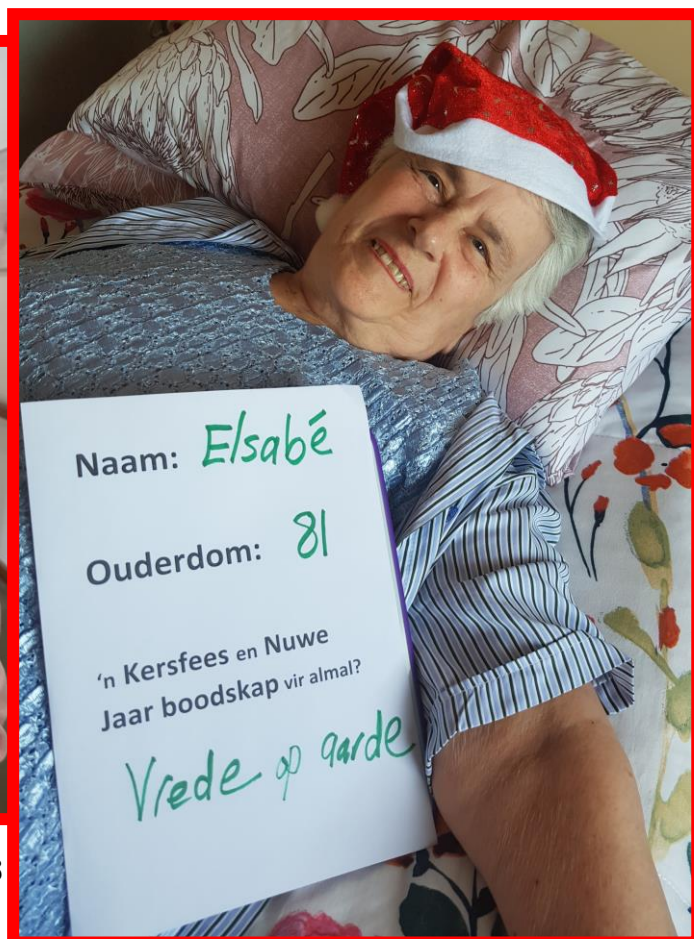 Naam: Elsabé
Ouderdom: 81
'n Kersfees en Nuwe
Jaar boodskap vir almal?
Vrede op aarde